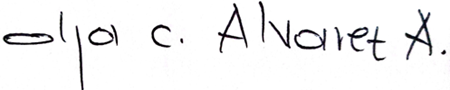 olga c. Alvarez A.